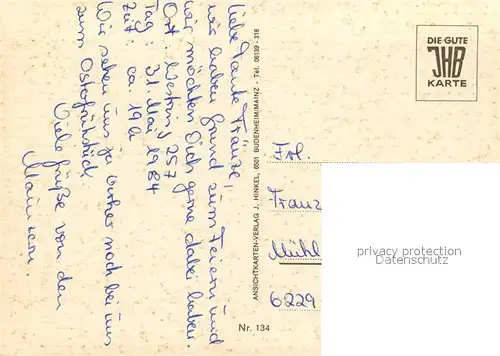 Liebe Tante Franze,
wir haben Grund zum Feiern und
wir möchten Dich gerne dabei haben.
Ort: 257
Tag: 31. Mai 1984
Zeit: ca 19 h
Wir sehen uns ja vorher noch bei uns
zum Osterfrühstück.
Viele Grüße von den
Mainzern
ANSICHTKARTEN-VERLAG J. HINKEL, 6501 BUDENHEIM/MAINZ - Tel. 06139 - 318
DIE GUTE
JHB
KARTE
Frl.
Franz
Mühl
6229
privacy protection
Datenschutz
Nr. 134